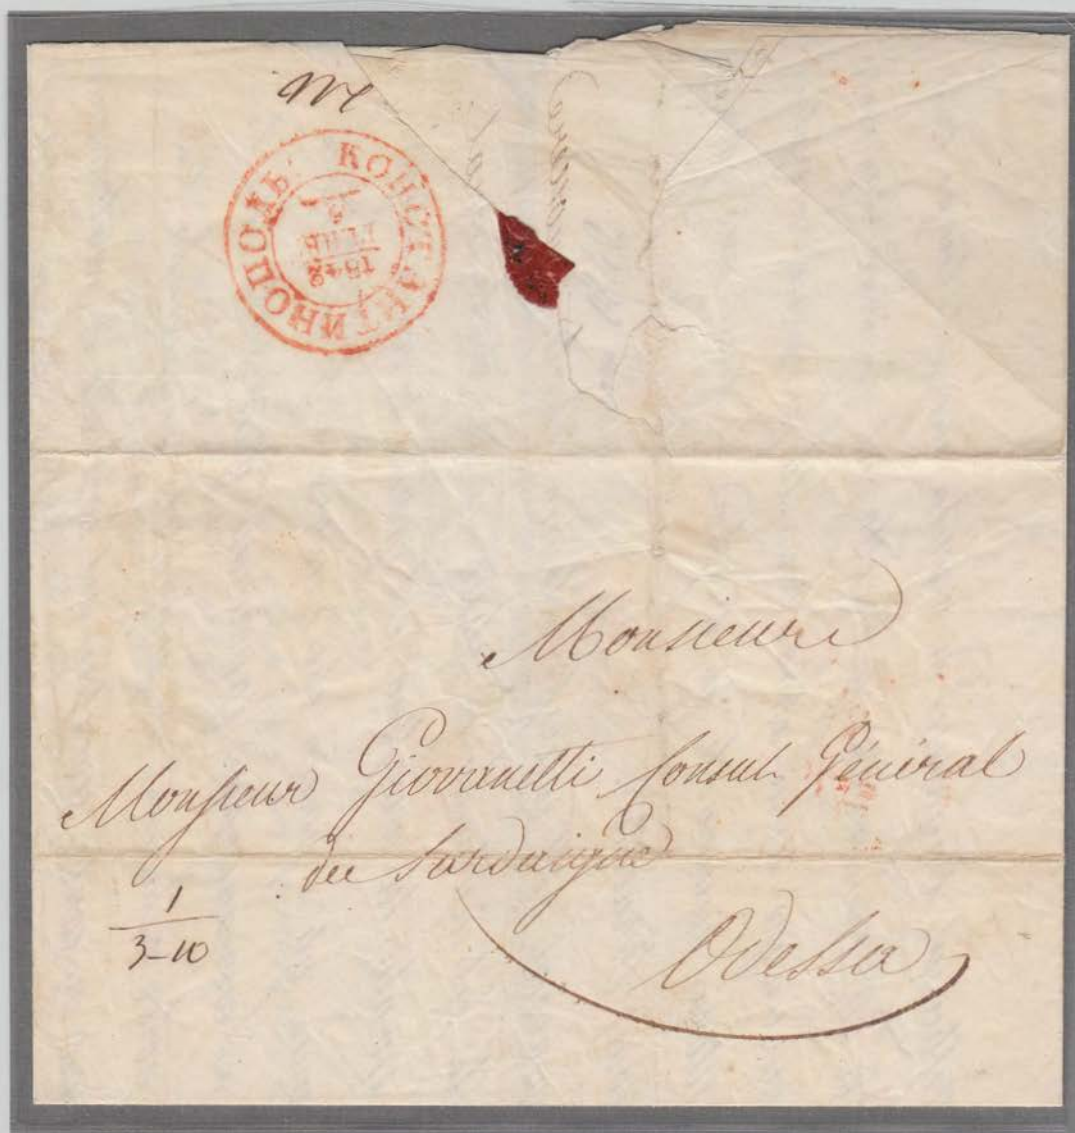 КОНСТАНТИНОПОЛЬ
1842
Monsieur
Monsieur Giovanetti Consul Général
de Sardaigne
Odessa
1
3-10